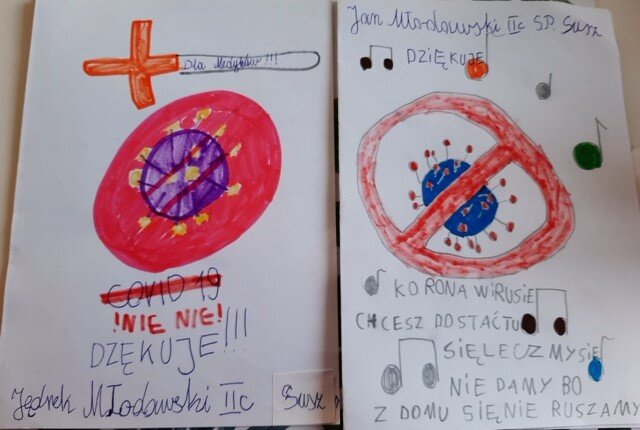 Dla Medyków!!!
COVID 19
!NIE NIE!
DZĘKUJE!!!
Jędrek Młodawski IIc Susz
Jan Młodawski IIc SP. Susz
DZIĘKUJE
KORONAWIRUSIE
CHCESZ DOSTAĆ TU
SIĘ LECZ MY SIĘ
NIE DAMY BO
Z DOMU SIĘ NIE RUSZAMY